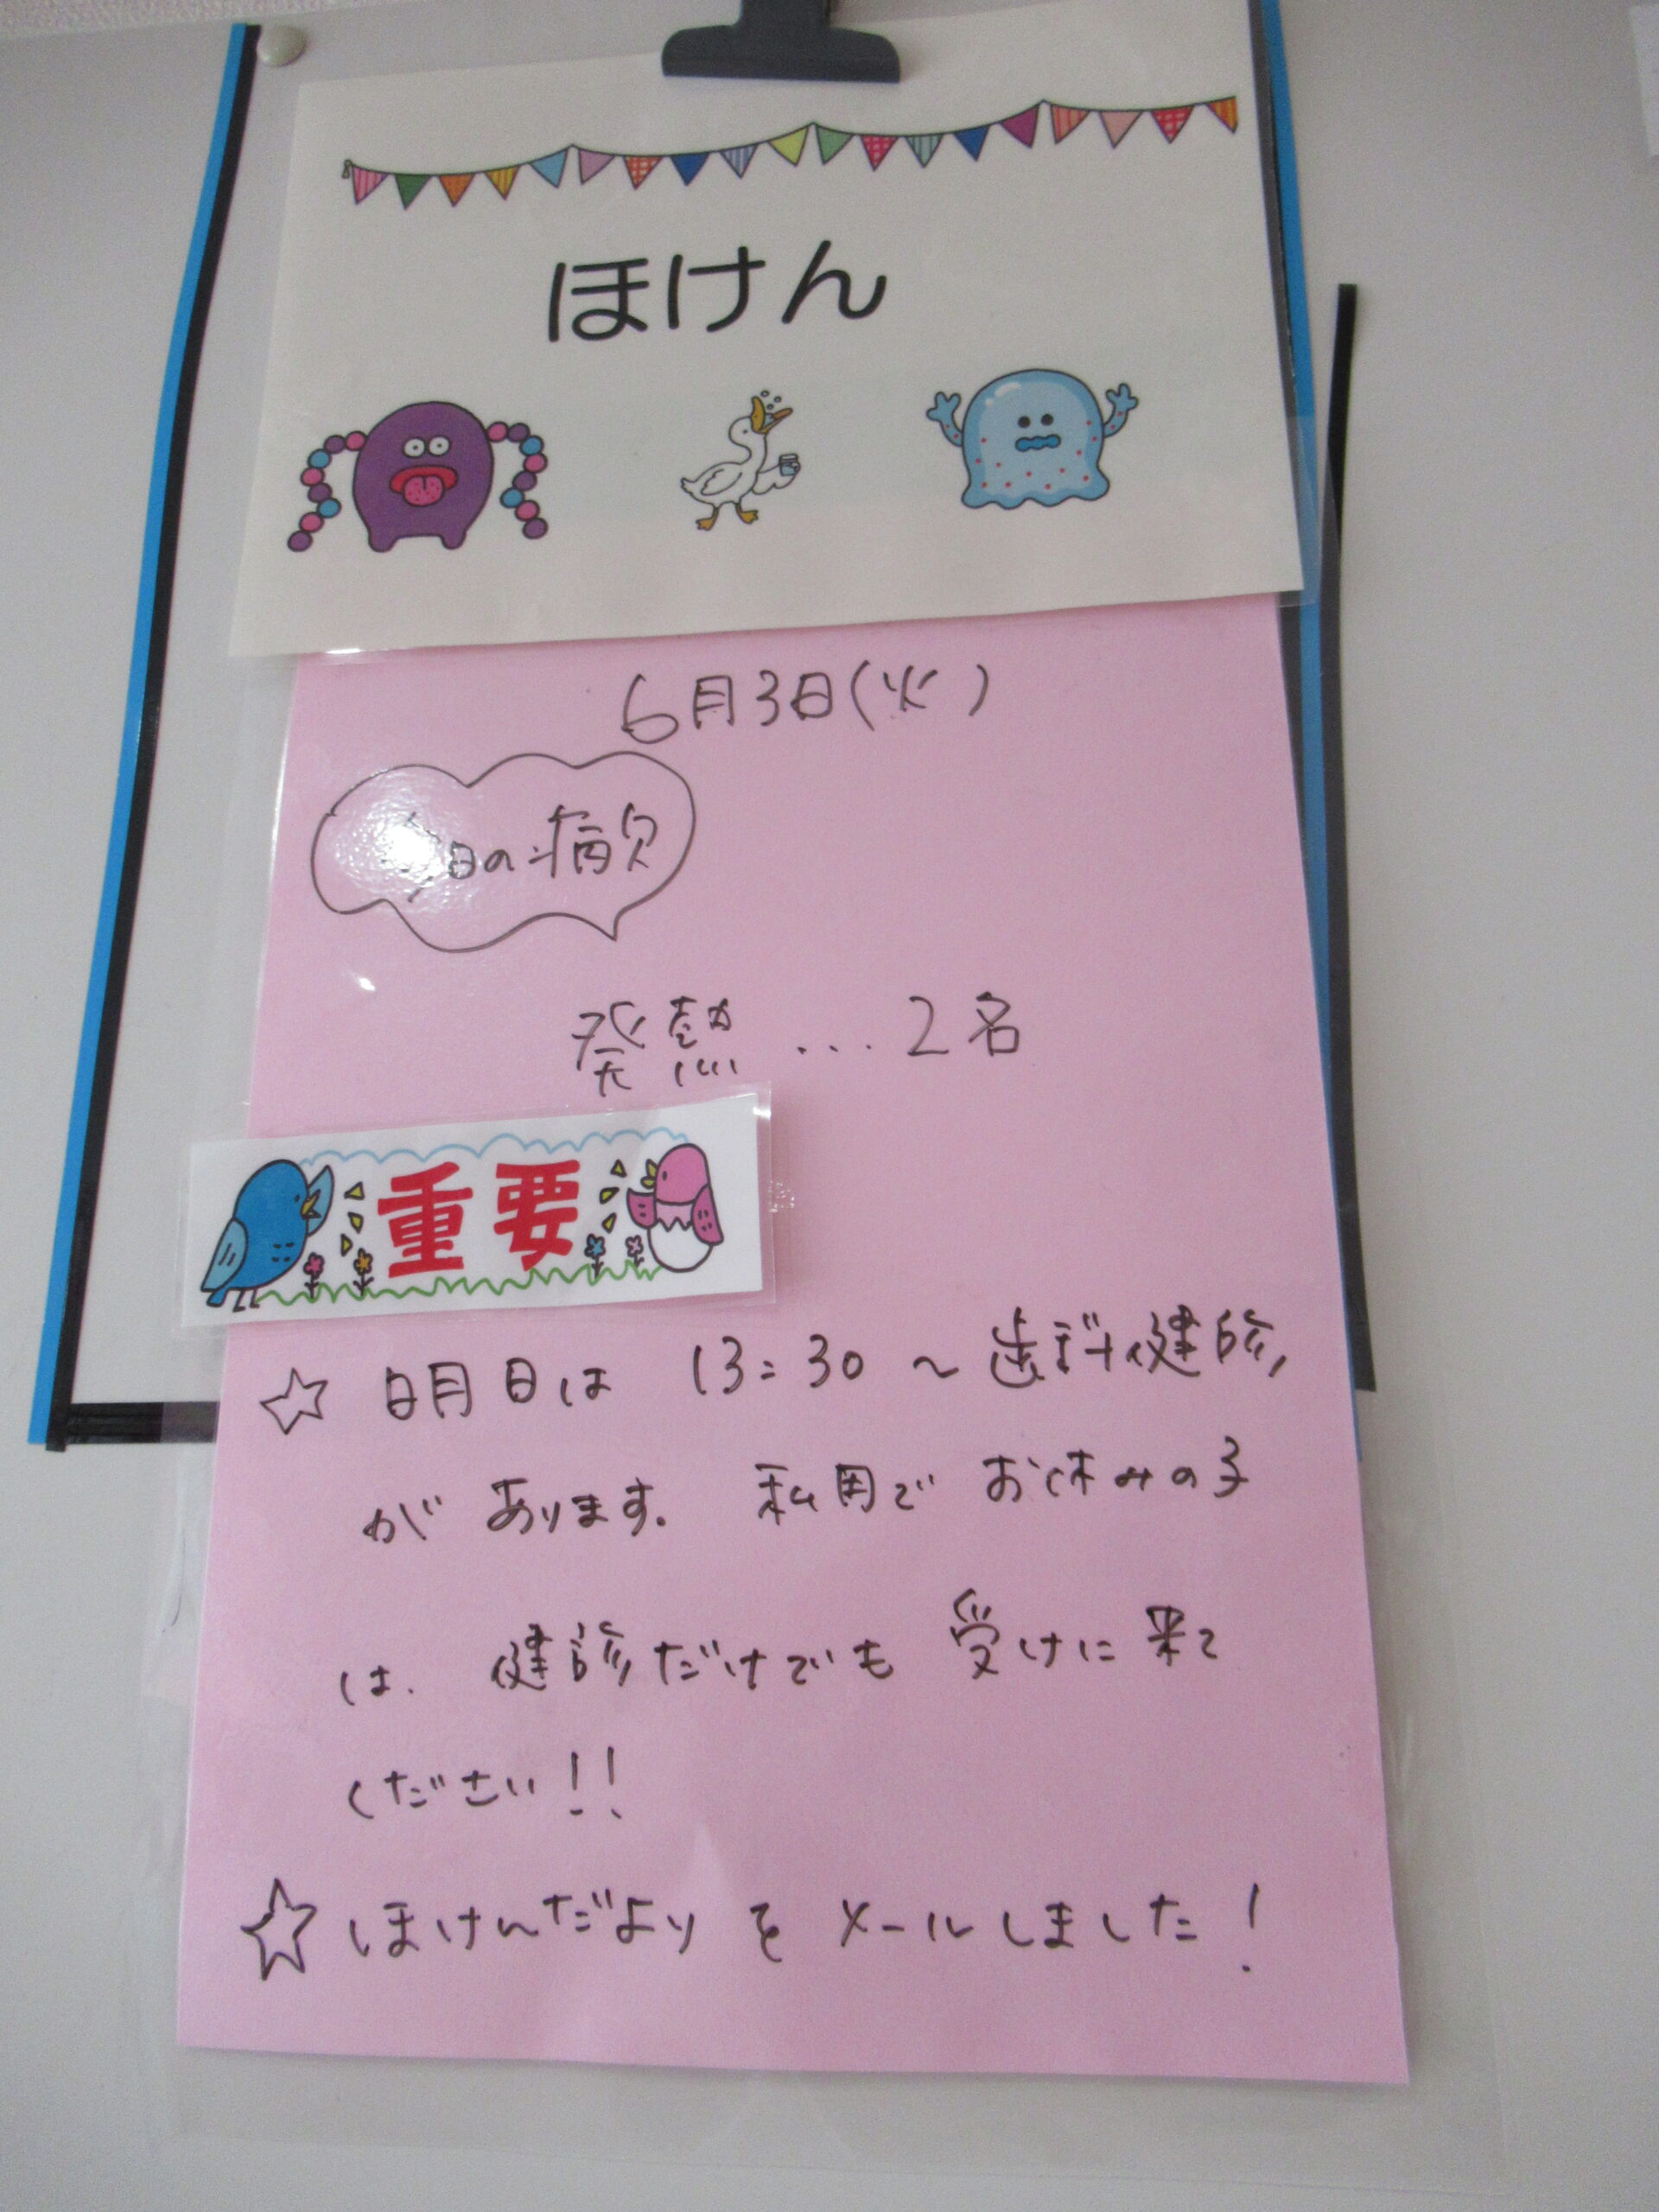 ほけん
6月3日(火)
今日の病欠
発熱 ... 2名
重要
☆ 明日は 13:30 ~ 歯科健診
が あります。 私用で お休みの子
は、健診だけでも 受けに来て
ください!!
☆ ほけんだより を メールしました!